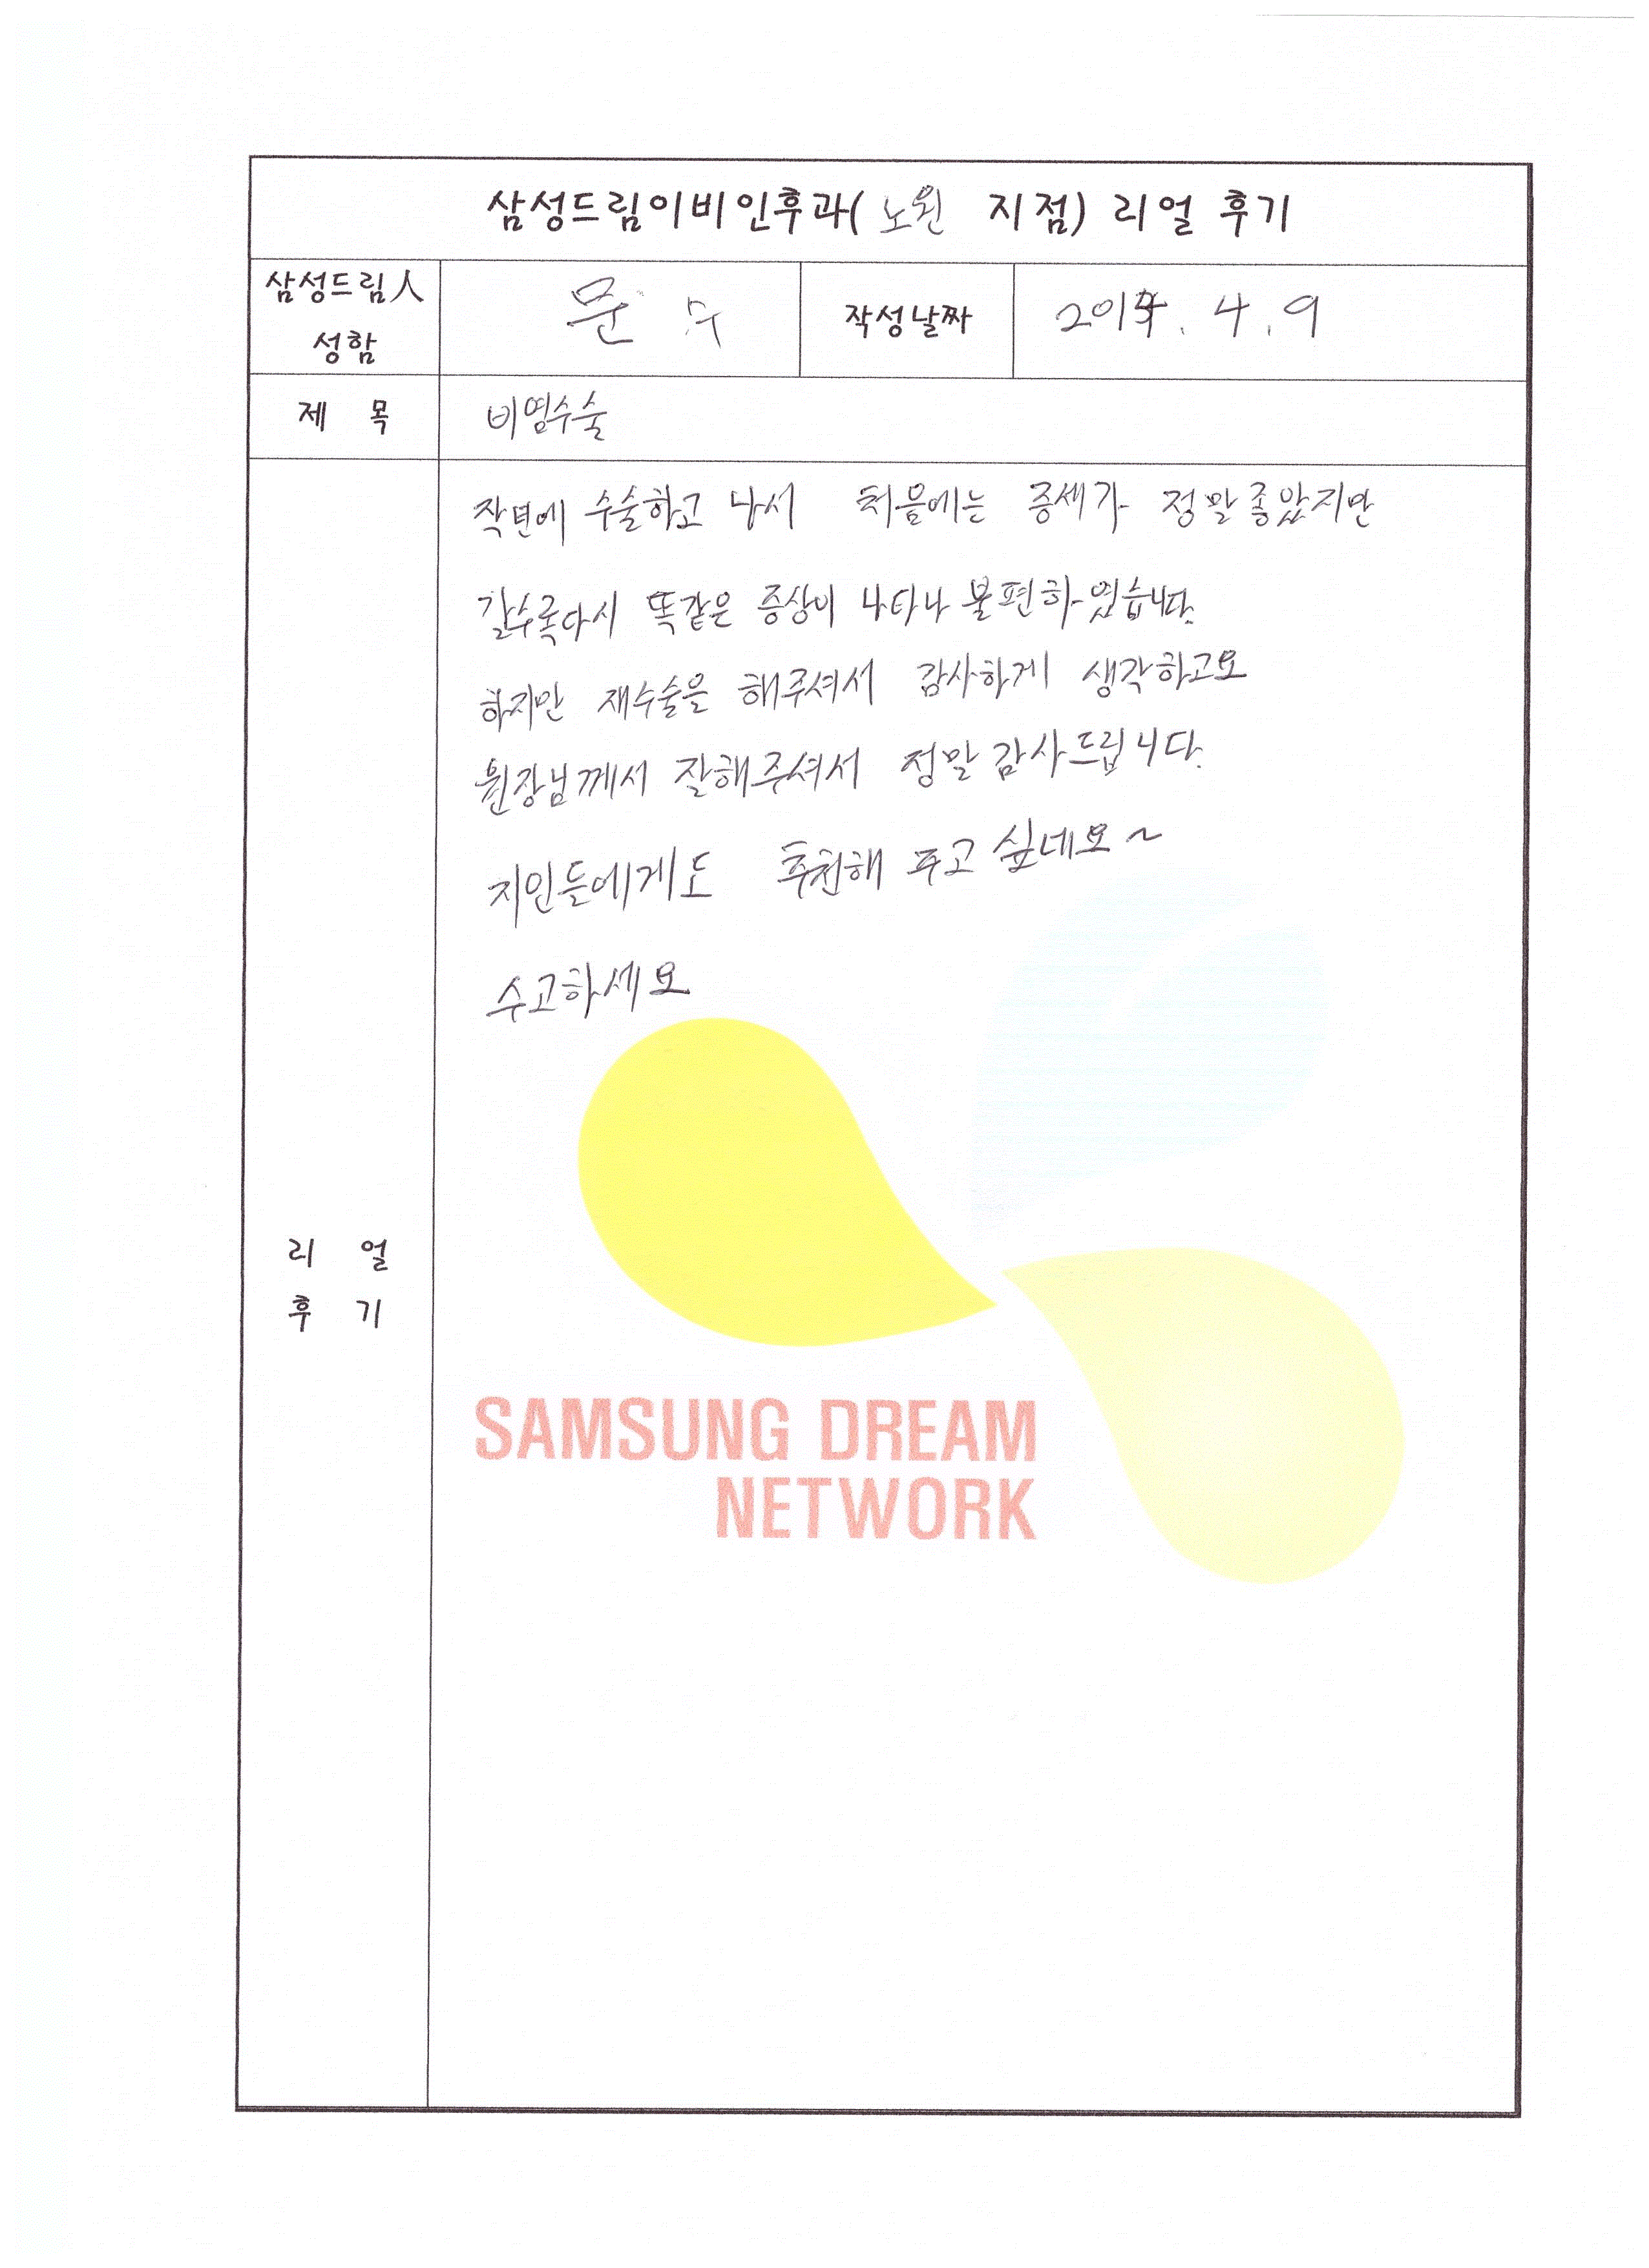 삼성드림이비인후과( 노원 지점) 리얼 후기
삼성드림人
성함
문 수
작성날짜
2014. 4. 9
제 목
비염수술
작년에 수술하고 나서 처음에는 증세가 정말좋았지만
갈수록다시 똑같은 증상이 나타나 불편하였습니다.
하지만 재수술을 해주셔서 감사하게 생각하고요
원장님께서 잘해주셔서 정말 감사드립니다.
지인들에게도 추천해 주고 싶네요~
수고하세요
리 얼
후 기
SAMSUNG DREAM
NETWORK